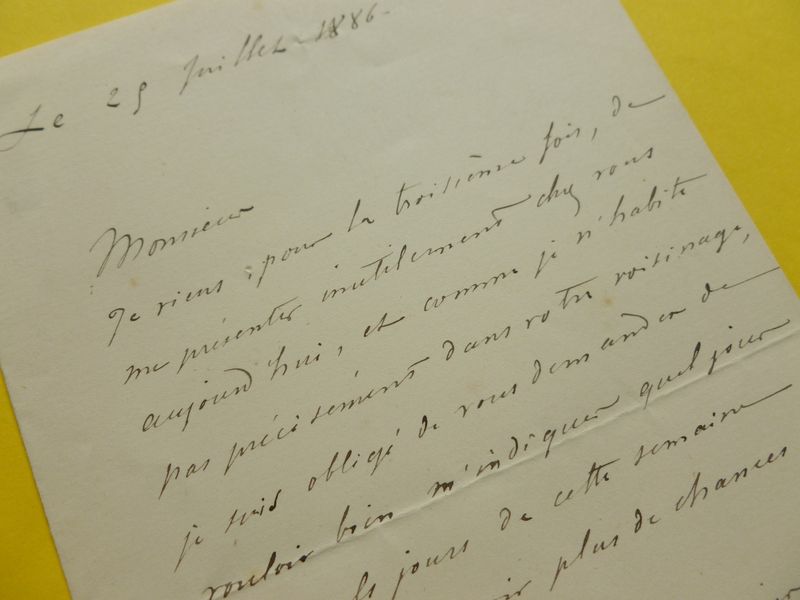 Le 25 Juillet 1886-
Monsieur
Je viens, pour la troisième fois, de
me présenter inutilement chez vous
aujourd'hui, et comme je n'habite
pas précisément dans votre voisinage,
je suis obligé de vous demander de
vouloir bien m'indiquer quel jour
jours de cette semaine
plus de chances